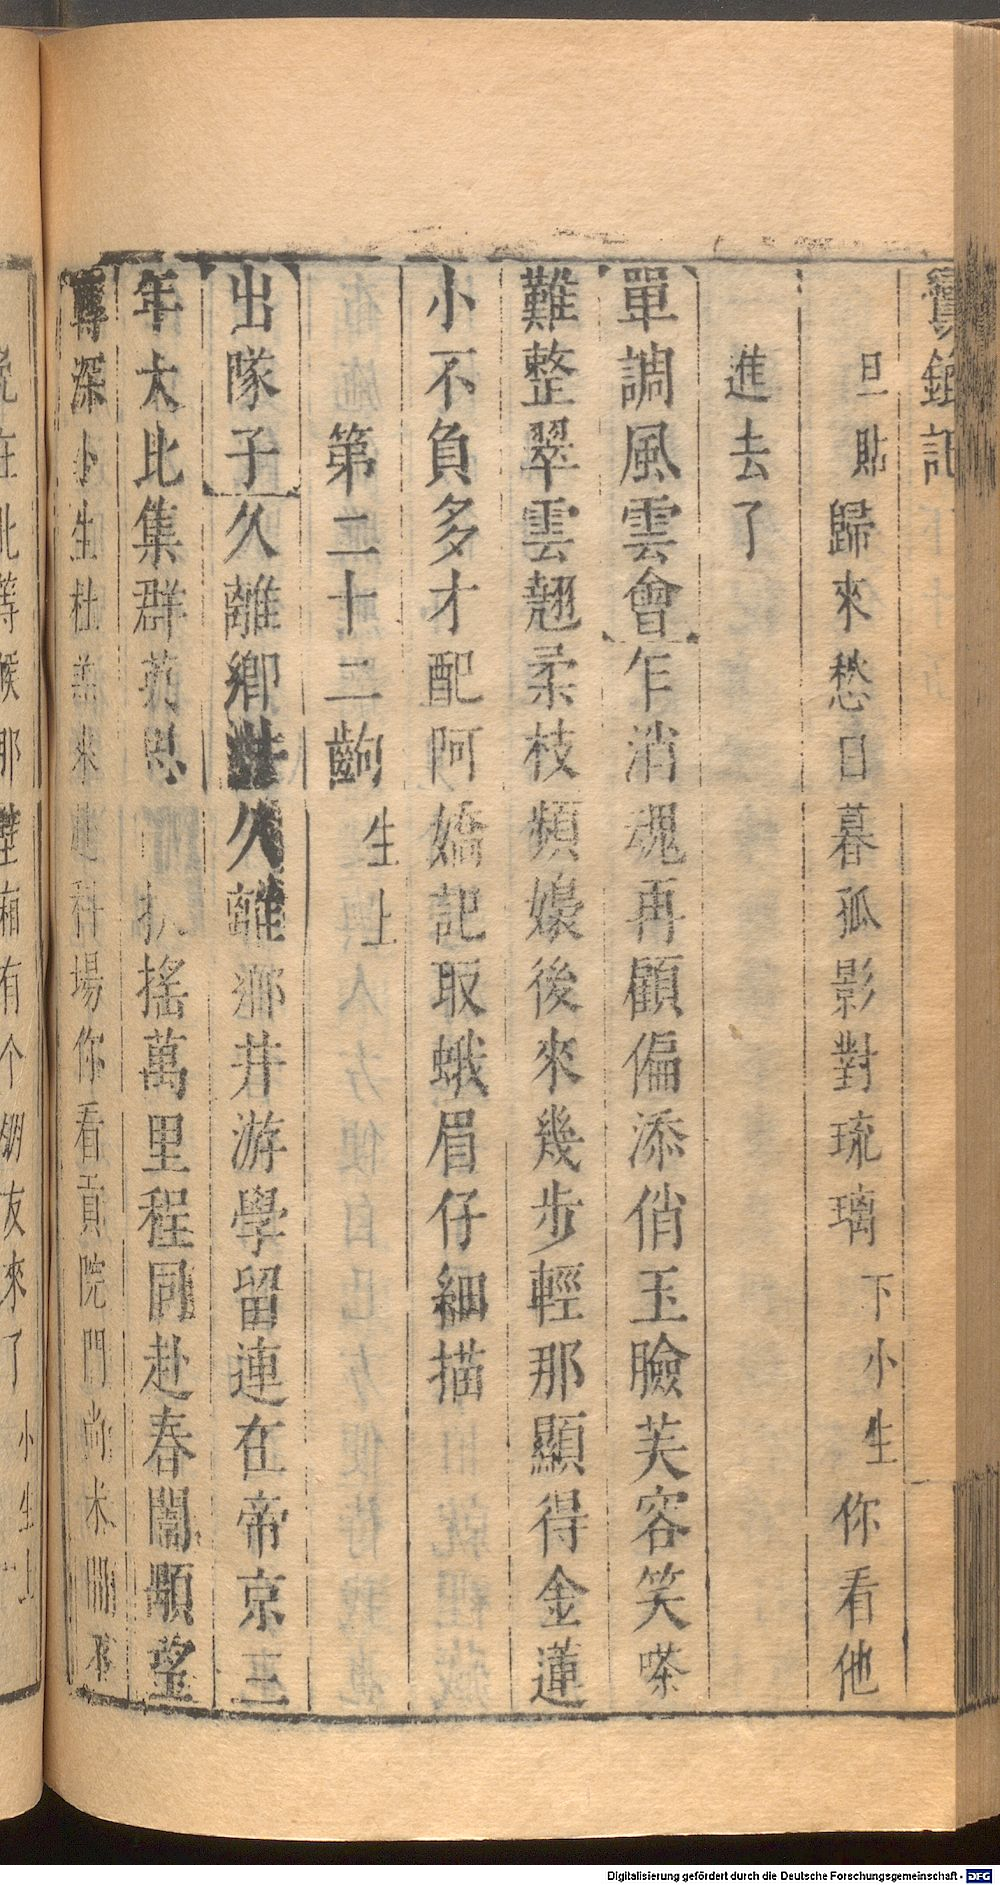 鸞鎞記
旦貼 歸來愁日暮孤影對琉璃 下小生 你看他
進去了
單調風雲會 乍消魂再顧偏添俏玉臉芙容笑嗏
難整翠雲翹柔枝頻嬝後來幾步輕那顯得金蓮
小不負多才配阿嬌記取蛾眉仔細描
第二十二齣 生上
出隊子 久離鄉井久離鄉井游學留連在帝京三
年大比集群英 扶搖萬里程同赴春闈顒望
深小生杜羔來 科場你看貢院門尚未開不
在此等候那壁廂有个朋友來了 小生上
Digitalisierung gefördert durch die Deutsche Forschungsgemeinschaft - DFG